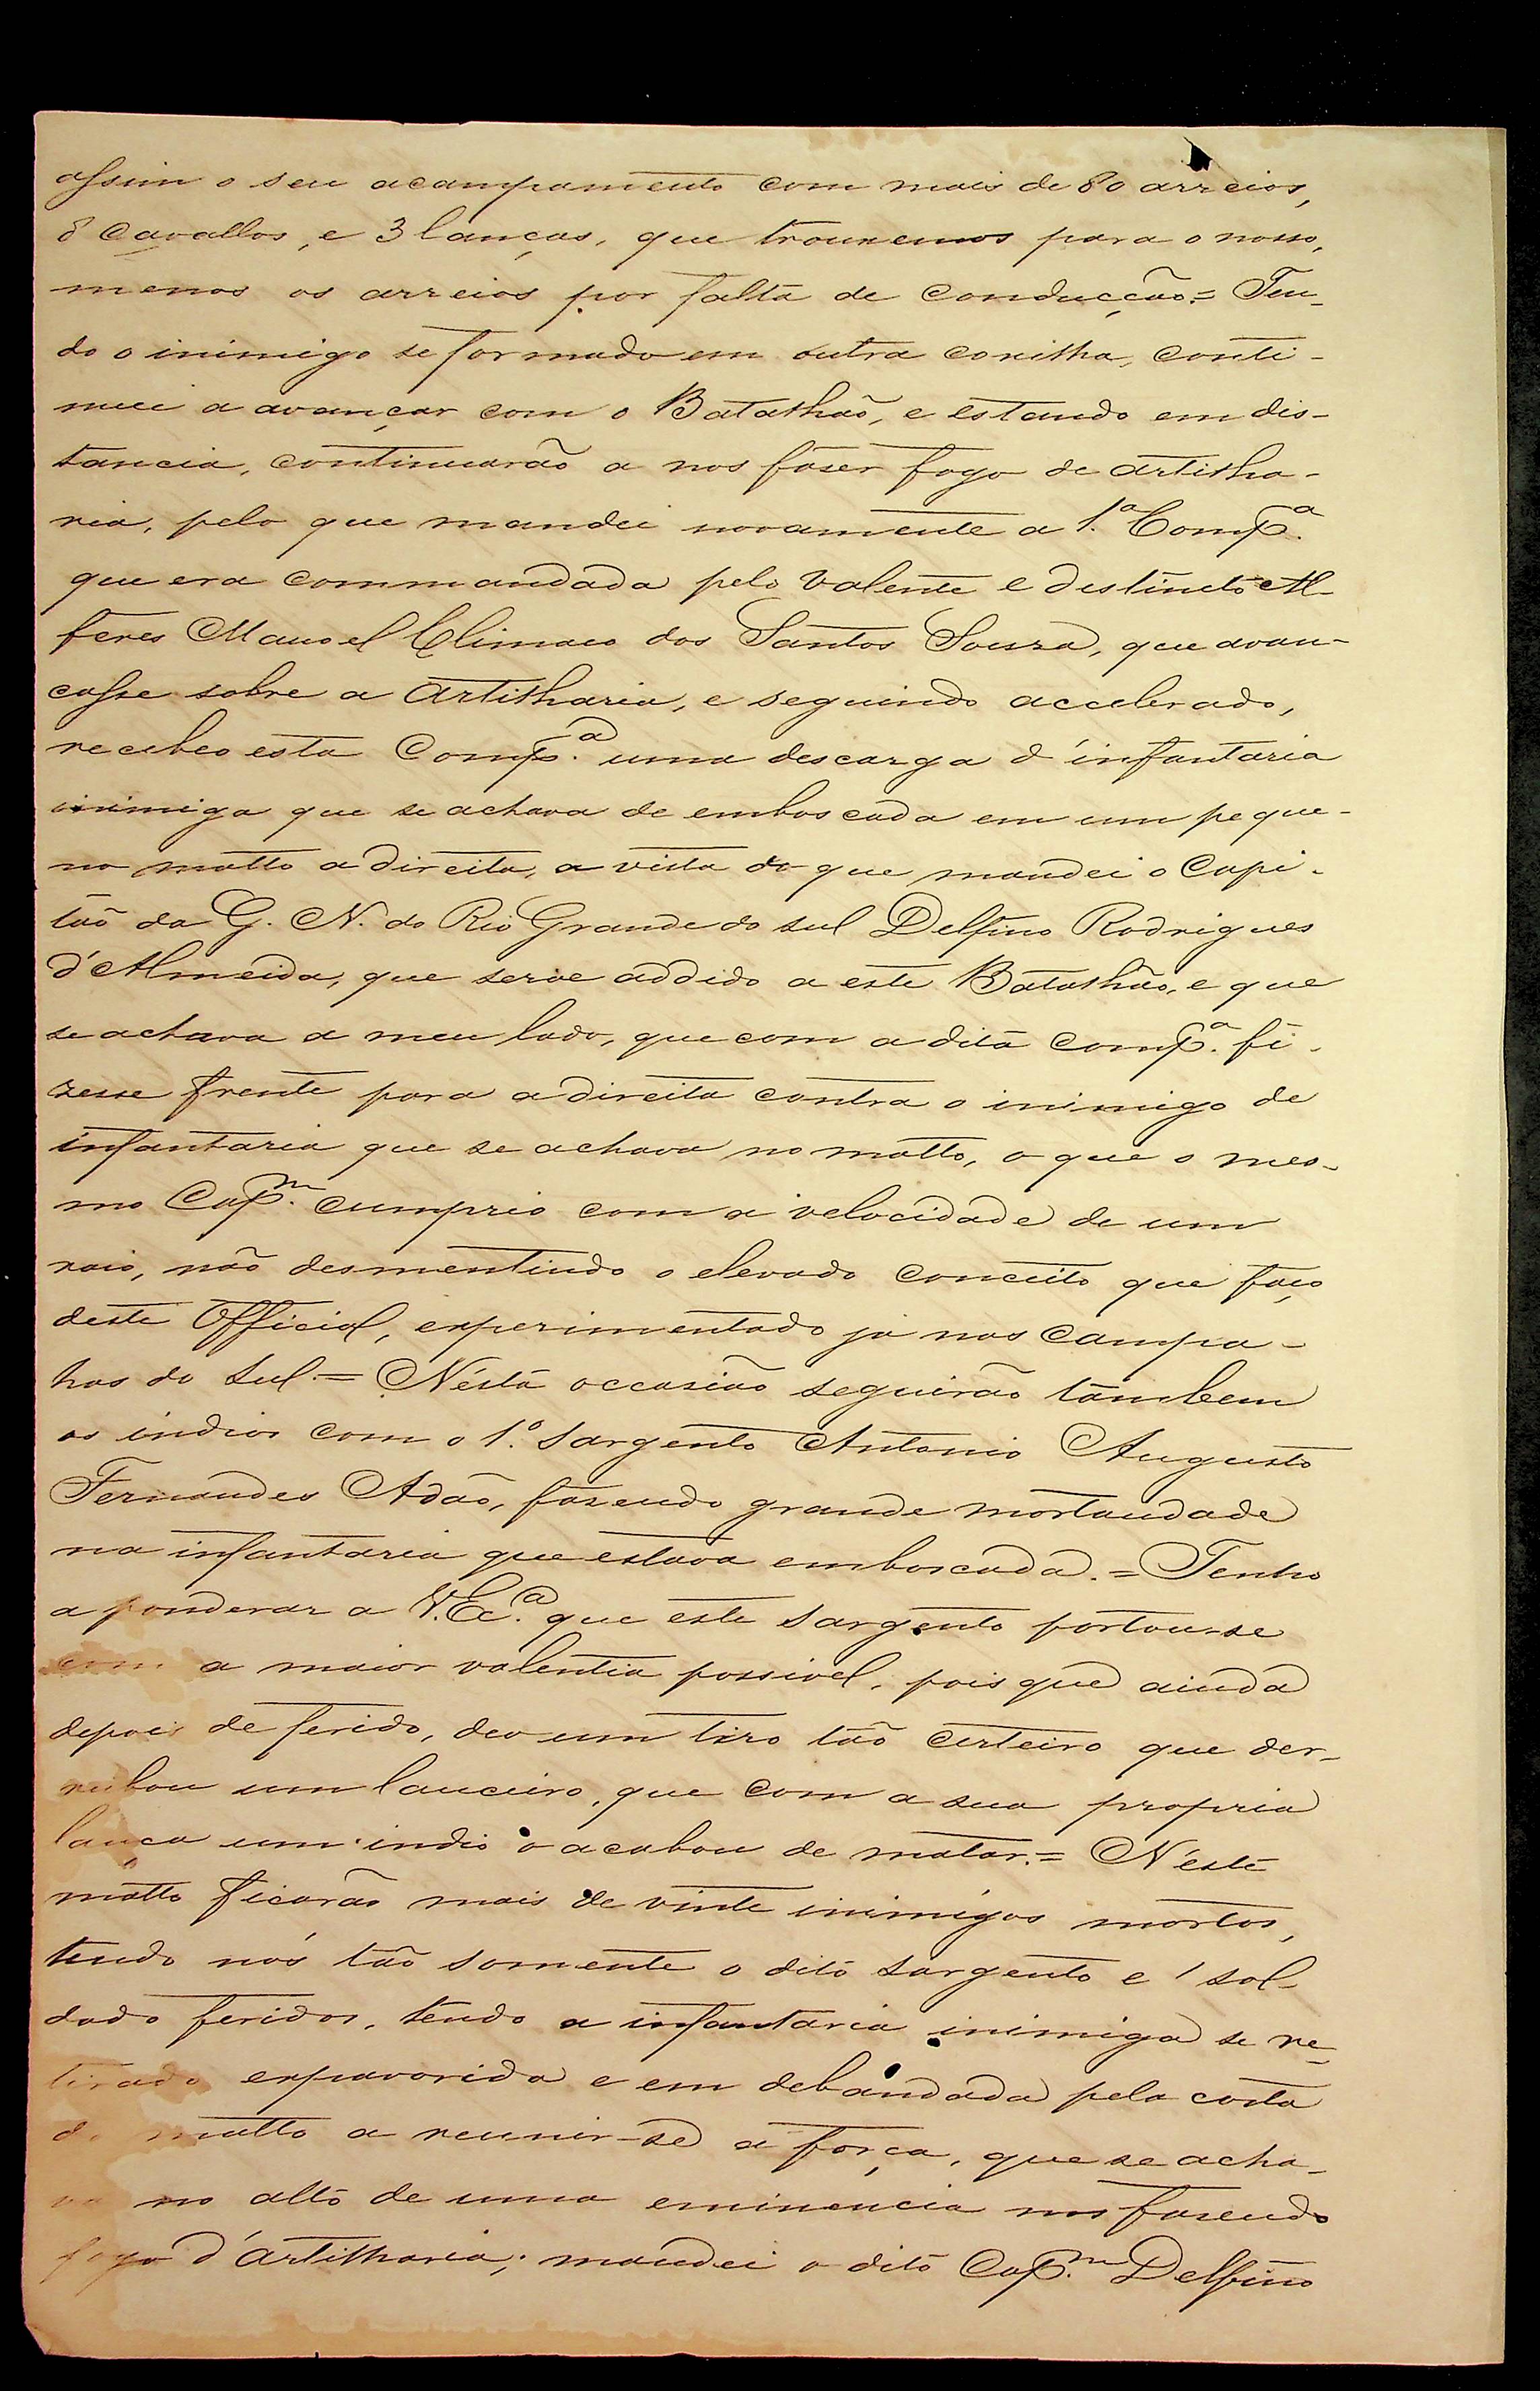 assim o seu acampamento com mais de 80 arreios,
8 cavallos, e 3 lanças, que trouxemos para o nosso,
menos os arreios por falta de conducção.= Ten-
do o inimigo se formado em outra coxilha, conti-
nuei a avançar com o Batalhão, e estando em dis-
tancia, continuarão a nos fazer fogo de artilha-
ria, pelo que mandei novamente a 1.ª Comp.ª
que era commandada pelo valente e destincto Al-
feres Manoel Climaco dos Santos Souza, que avan-
casse sobre a artilharia, e seguindo accelerado,
recebeo esta Comp.ª uma descarga d'infantaria
inimiga que se achava de emboscada em um peque-
no matto a direita, a vista do que mandei o Capi-
tão da G. N. do Rio Grande do Sul Delfino Rodrigues
d'Almeida, que serve addido a este Batalhão, e que
se achava a meu lado, que com a dita Comp.ª fi-
zesse frente para a direita contra o inimigo de
infantaria que se achava no matto, o que o mes-
mo Cap.m cumprio com a velocidade de um
raio, não desmentindo o elevado conceito que faço
deste Official, experimentado já nas campa-
has do Sul.= N'esta occasião seguirão tambem
os indios com o 1.º Sargento Antonio Augusto
Fernandes Adão, fazendo grande mortandade
na infantaria que estava emboscada.= Tenho
a ponderar a V. Ex.ª que este Sargento portou-se
com a maior valentia possivel, pois que ainda
depois de ferido, deo um tiro tão certeiro que der-
rubou um lanceiro, que com a sua propria
lança um indio o acabou de matar.= N'este
matto ficarão mais de vinte inimigos mortos,
tendo nós tão somente o dito Sargento e 1 sol-
dado feridos, tendo a infantaria inimiga se re-
tirado expavorida e em debandada pela costa
do matto a reunir-se a força, que se acha-
va no alto de uma eminencia nos fazendo
fogo d'artilharia; mandei o dito Cap.m Delfino